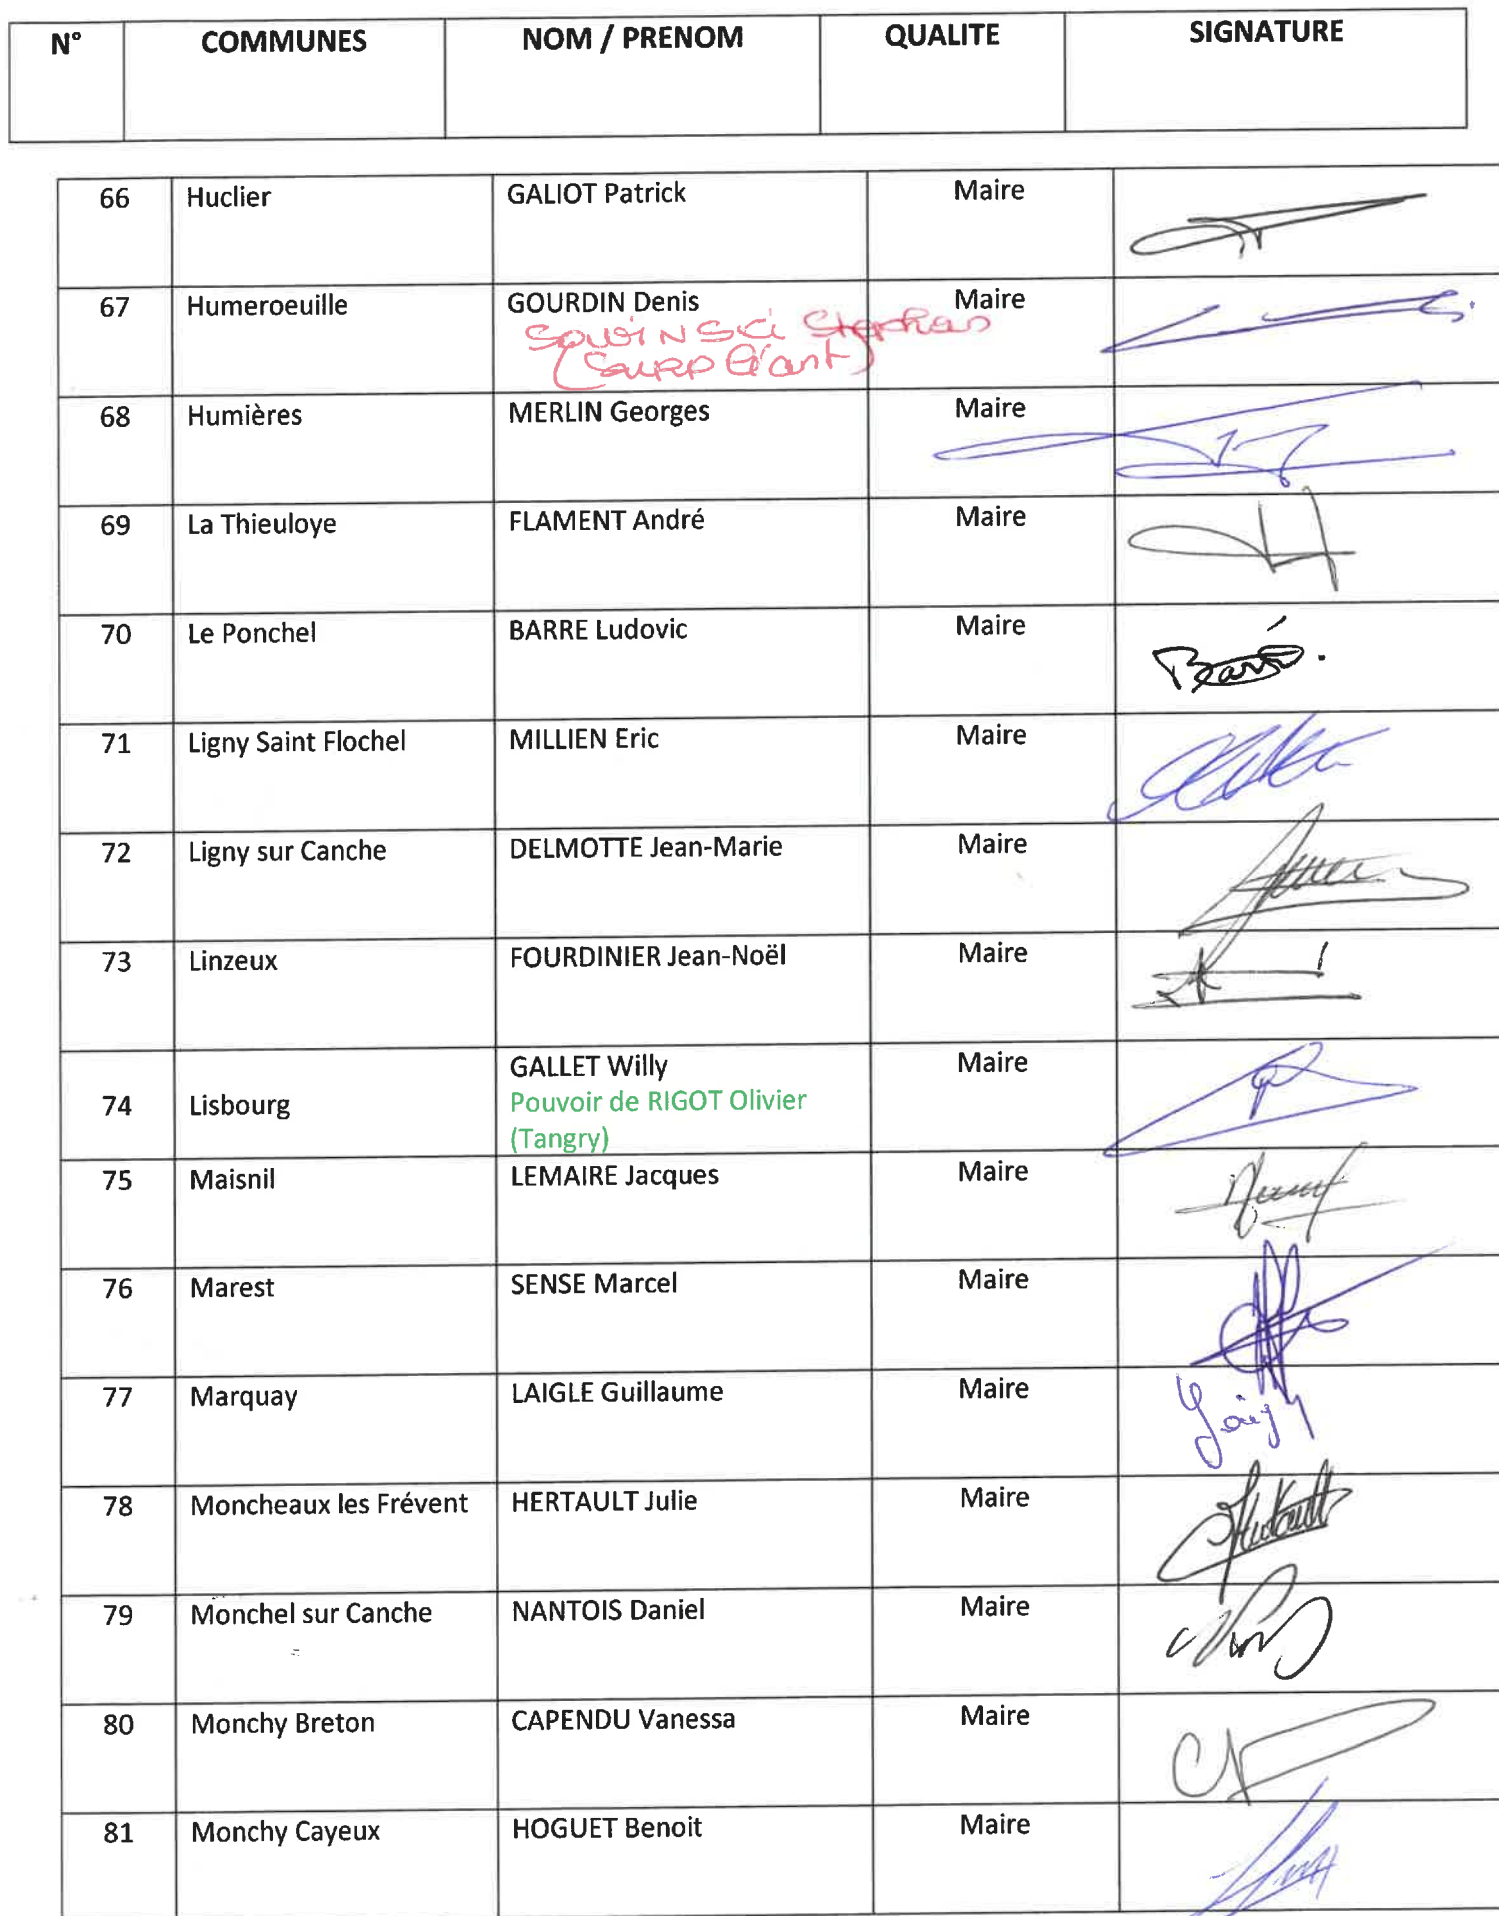 N° COMMUNES NOM / PRENOM QUALITE SIGNATURE
66 Huclier GALIOT Patrick Maire
67 Humeroeuille GOURDIN Denis Maire
SOWINSKI Stephan
(Suppléant)
68 Humières MERLIN Georges Maire
69 La Thieuloye FLAMENT André Maire
70 Le Ponchel BARRE Ludovic Maire
71 Ligny Saint Flochel MILLIEN Eric Maire
72 Ligny sur Canche DELMOTTE Jean-Marie Maire
73 Linzeux FOURDINIER Jean-Noël Maire
GALLET Willy Maire
74 Lisbourg Pouvoir de RIGOT Olivier
(Tangry)
75 Maisnil LEMAIRE Jacques Maire
76 Marest SENSE Marcel Maire
77 Marquay LAIGLE Guillaume Maire
78 Moncheaux les Frévent HERTAULT Julie Maire
79 Monchel sur Canche NANTOIS Daniel Maire
80 Monchy Breton CAPENDU Vanessa Maire
81 Monchy Cayeux HOGUET Benoit Maire